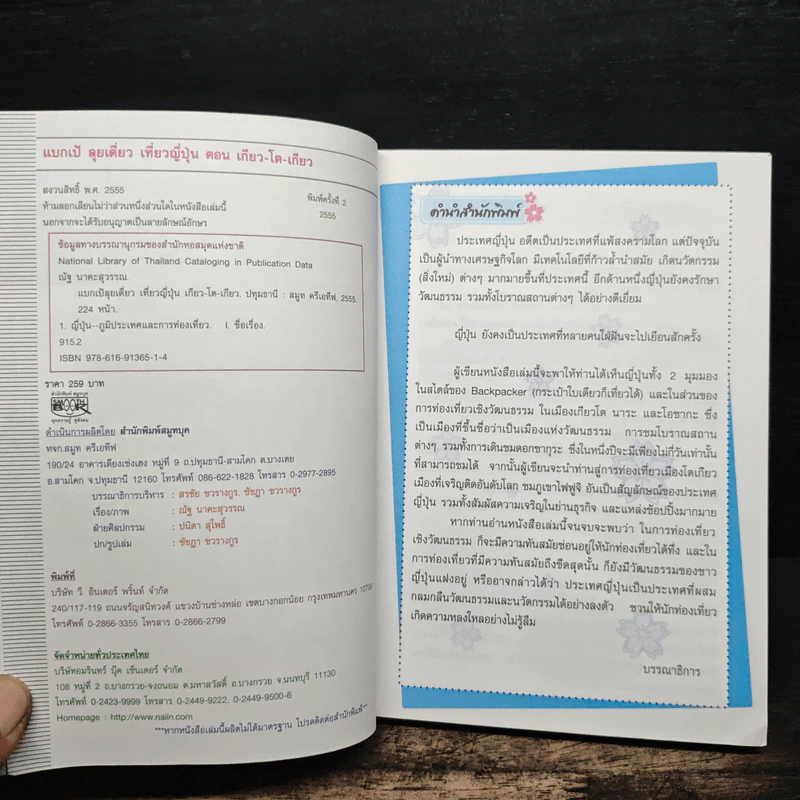 แบกเป้ ลุยเดี่ยว เที่ยวญี่ปุ่น ตอน เกียว-โต-เกียว
สงวนสิทธิ์ พ.ศ. 2555
พิมพ์ครั้งที่ 2
ห้ามลอกเลียนไม่ว่าส่วนหนึ่งส่วนใดในหนังสือเล่มนี้
2555
นอกจากจะได้รับอนุญาตเป็นลายลักษณ์อักษร
ข้อมูลทางบรรณานุกรมของสำนักหอสมุดแห่งชาติ
National Library of Thailand Cataloging in Publication Data
ณัฐ นาคะสุวรรณ.
แบกเป้ลุยเดี่ยว เที่ยวญี่ปุ่น เกียว-โต-เกียว. ปทุมธานี : สมูท ครีเอทีฟ, 2555.
224 หน้า.
1. ญี่ปุ่น--ภูมิประเทศและการท่องเที่ยว. I. ชื่อเรื่อง.
915.2
ISBN 978-616-91365-1-4
ราคา 259 บาท
สำนักพิมพ์ สมูทบุค
SMOOTH
BOOK
ทุกความรู้ คู่สังคม
ดำเนินการผลิตโดย สำนักพิมพ์สมูทบุค
หจก.สมูท ครีเอทีฟ
190/24 อาคารเตียงเช่งเฮง หมู่ที่ 9 ถ.ปทุมธานี-สามโคก ต.บางเตย
อ.สามโคก จ.ปทุมธานี 12160 โทรศัพท์ 086-622-1828 โทรสาร 0-2977-2895
บรรณาธิการบริหาร : สรชัย ชวรางกูร, ชัชฎา ชวรางกูร
เรื่อง/ภาพ : ณัฐ นาคะสุวรรณ
ฝ่ายศิลปกรรม : ปนิดา สุโพธิ์
ปก/รูปเล่ม : ชัชฎา ชวรางกูร
พิมพ์ที่
บริษัท วี. อินเตอร์ พริ้นท์ จำกัด
240/117-119 ถนนจรัญสนิทวงศ์ แขวงบ้านช่างหล่อ เขตบางกอกน้อย กรุงเทพมหานคร 10700
โทรศัพท์ 0-2866-3355 โทรสาร 0-2866-2799
จัดจำหน่ายทั่วประเทศไทย
บริษัทอมรินทร์ บุ๊ค เซ็นเตอร์ จำกัด
108 หมู่ที่ 2 ถ.บางกรวย-จงถนอม ต.มหาสวัสดิ์ อ.บางกรวย จ.นนทบุรี 11130
โทรศัพท์ 0-2423-9999 โทรสาร 0-2449-9222, 0-2449-9500-6
Homepage : http://www.naiin.com
***หากหนังสือเล่มนี้ผลิตไม่ได้มาตรฐาน โปรดติดต่อสำนักพิมพ์***
คำนำสำนักพิมพ์
ประเทศญี่ปุ่น อดีตเป็นประเทศที่แพ้สงครามโลก แต่ปัจจุบัน
เป็นผู้นำทางเศรษฐกิจโลก มีเทคโนโลยีที่ก้าวล้ำนำสมัย เกิดนวัตกรรม
(สิ่งใหม่) ต่างๆ มากมายขึ้นที่ประเทศนี้ อีกด้านหนึ่งญี่ปุ่นยังคงรักษา
วัฒนธรรม รวมทั้งโบราณสถานต่างๆ ได้อย่างดีเยี่ยม
ญี่ปุ่น ยังคงเป็นประเทศที่หลายคนใฝ่ฝันจะไปเยือนสักครั้ง
ผู้เขียนหนังสือเล่มนี้จะพาให้ท่านได้เห็นญี่ปุ่นทั้ง 2 มุมมอง
ในสไตล์ของ Backpacker (กระเป๋าใบเดียวก็เที่ยวได้) และในส่วนของ
การท่องเที่ยวเชิงวัฒนธรรม ในเมืองเกียวโต นาระ และโอซากะ ซึ่ง
เป็นเมืองที่ขึ้นชื่อว่าเป็นเมืองแห่งวัฒนธรรม การชมโบราณสถาน
ต่างๆ รวมทั้งการเดินชมดอกซากุระ ซึ่งในหนึ่งปีจะมีเพียงไม่กี่วันเท่านั้น
ที่สามารถชมได้ จากนั้นผู้เขียนจะนำท่านสู่การท่องเที่ยวเมืองโตเกียว
เมืองที่เจริญติดอันดับโลก ชมภูเขาไฟฟูจิ อันเป็นสัญลักษณ์ของประเทศ
ญี่ปุ่น รวมทั้งสัมผัสความเจริญในย่านธุรกิจ และแหล่งช้อปปิ้งมากมาย
หากท่านอ่านหนังสือเล่มนี้จนจบจะพบว่า ในการท่องเที่ยว
เชิงวัฒนธรรม ก็จะมีความทันสมัยซ่อนอยู่ให้นักท่องเที่ยวได้ทึ่ง และใน
การท่องเที่ยวที่มีความทันสมัยถึงขีดสุดนั้น ก็ยังมีวัฒนธรรมของชาว
ญี่ปุ่นแฝงอยู่ หรืออาจกล่าวได้ว่า ประเทศญี่ปุ่นเป็นประเทศที่ผสม
กลมกลืนวัฒนธรรมและนวัตกรรมได้อย่างลงตัว ชวนให้นักท่องเที่ยว
เกิดความหลงใหลอย่างไม่รู้ลืม
บรรณาธิการ